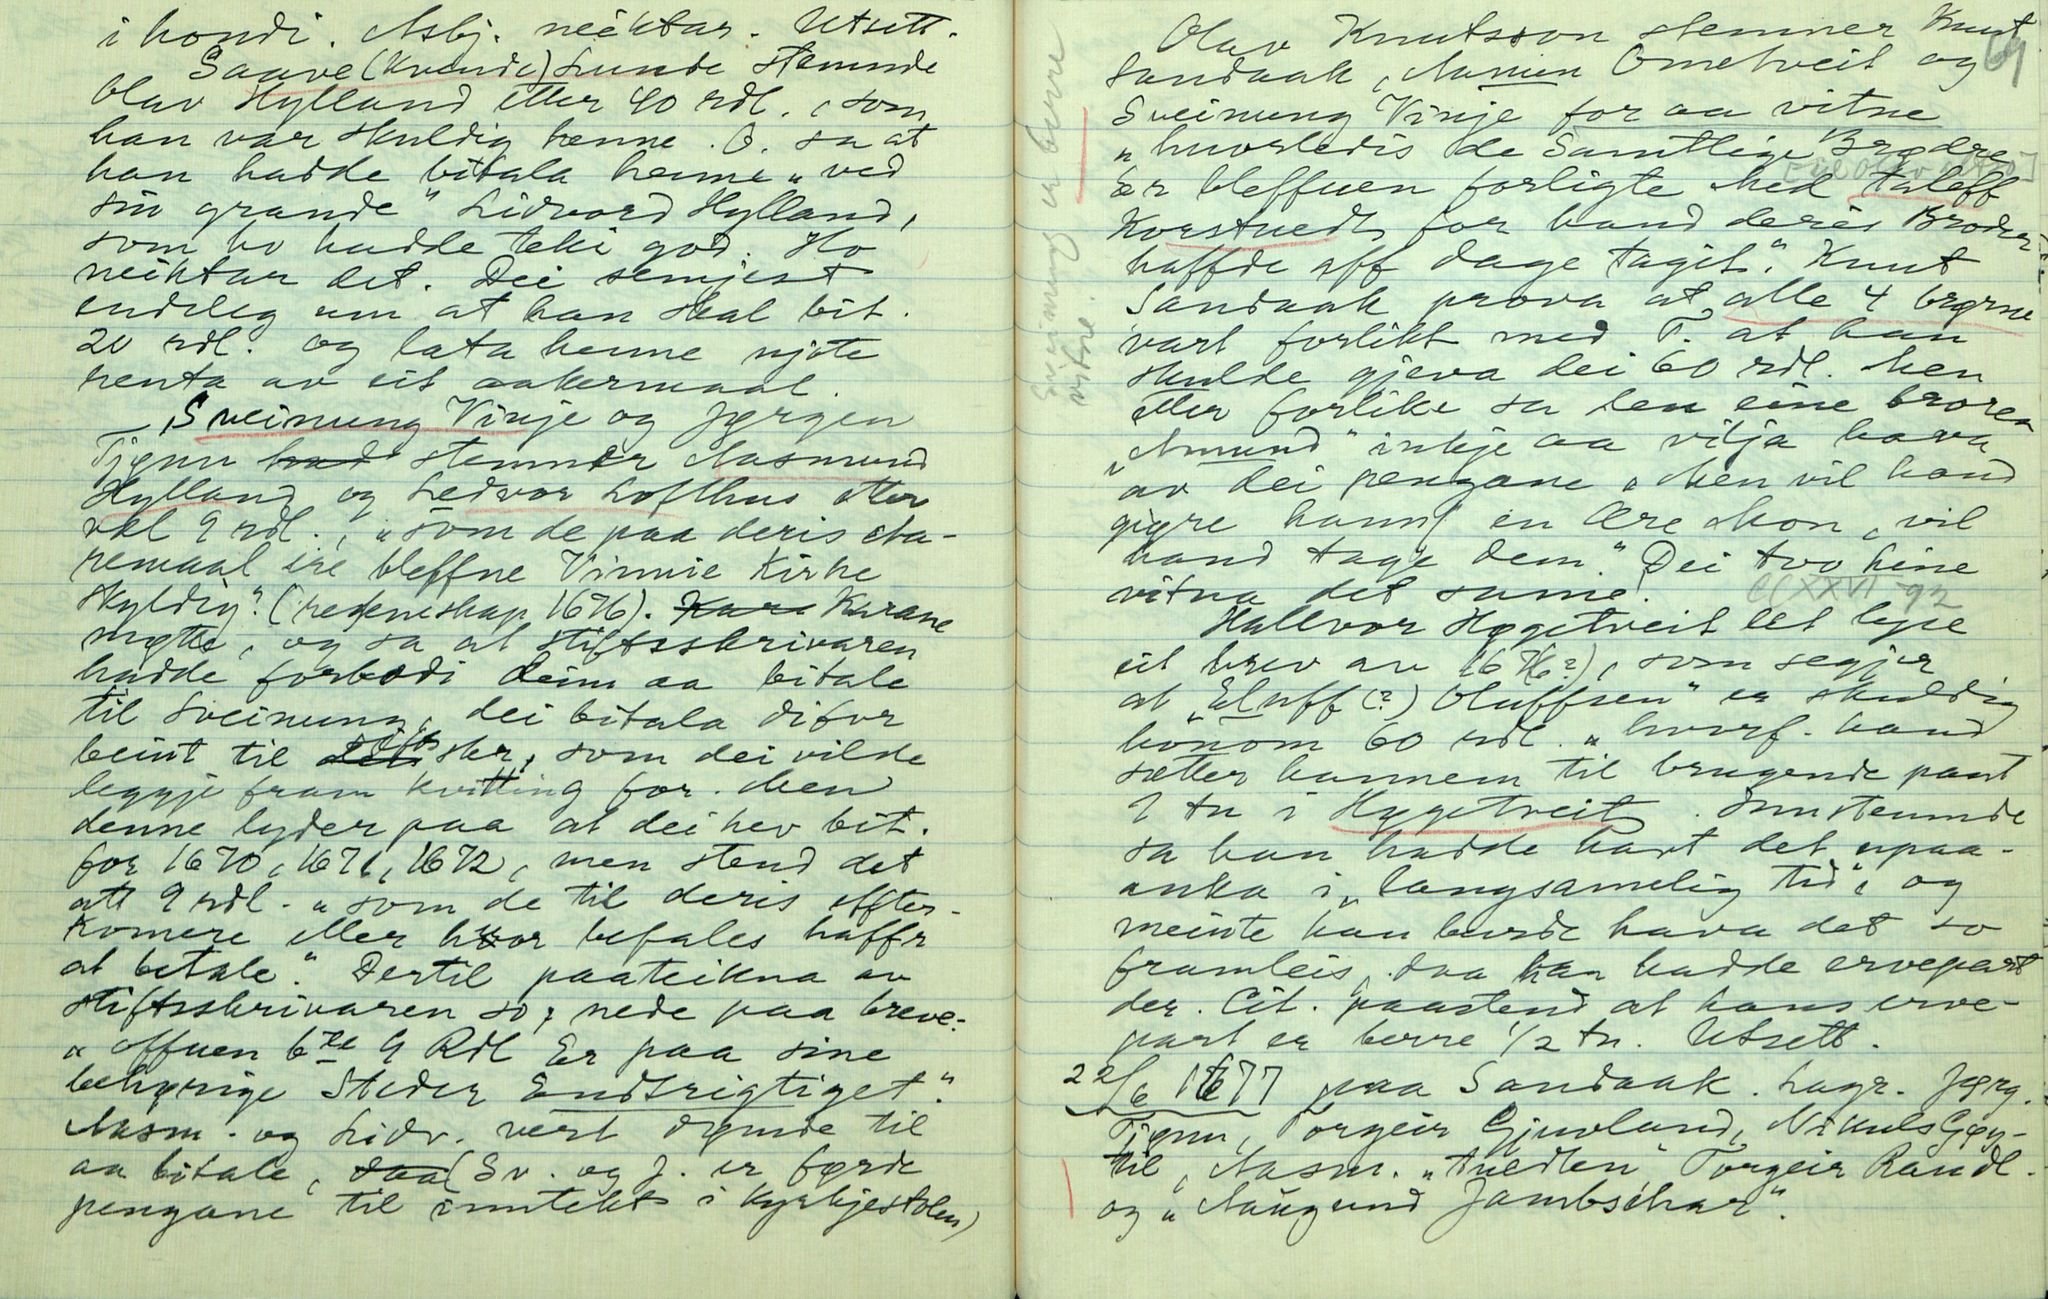 i hondi. Asbj. neiktar. Utsett.
Saave (Kvinde) Lunde stemnde
Olav Hylland etter 40 rdl., som
han var skuldig henne. O. sa at
han hadde bitala henne „ved
sin grande" Lidvord Hylland,
som ho hadde teki god. Ho
neiktar det. Dei semjest
endeleg um at han skal bit.
20 rdl. og lata henne njote
renta av eit aakermaal.
Sveinung Vinje og Jørgen
Tjønn had stemner Aasmund
Hylland og Ledvor Lofthus etter
vel 9 rdl., „som de paa deris Aa-
remaal ere bleffne Vinnie Kirke
Skyldig". (rekneskap 1676). Kara Karane
møtte, og sa at stiftsskrivaren
hadde forbodi deim aa bitale
til Sveinung, dei bitala difor
beint til stifts skr., som dei vilde
leggje fram kvitting for. Men
denne lyder paa at dei hev bit.
for 1670, 1671, 1672, men stend det
att 9 rdl. „som de til deris effter-
komere eller hvor befales haffr
at betale". Dertil paateikna av
stiftsskrivaren so; nede paa breve:
„offuen bne 9 Rdl Er paa sine
behørige Steder Endtrigtiget".
Aasm. og Lidv. vert dømde til
aa bitale, daa (Sv. og J. er førde
pengane til inntekt i kyrkjestolen)
69
Olav Knutsson stemner Knut
Sandaak, Aamun Ometveit og
Sveinung Vinje for aa vitne
„huorledis de Samtlige Brødre
Er bleffuen forligte Med Taleff
Korstuedt for hand deris Broder
haffde aff dage tagit". Knut
Sandaak prova at alle 4 brørne
vart forlikt med T. at han
skulde gjeva dei 60 rdl. Men
etter forlike sa den eine broren
„Amund" inkje aa vilja hava
av dei pengane „Men vil hand
giøre hans en Ære Mon, vil
hand tage dem". Dei tvo hine
vitna det same.
CCXXVI 92
Hallvor Høgetveit let lyse
eit brev av 1676(?), som segjer
at „Eluff (?) Oluffsen" er skuldig
honom 60 rdl. „hvorf. hand
sætter hannem til brugende pant
2 tn i Høgetveit. Innstemnde
sa han hadde havt det upaa-
anka i „langsamelig tid", og
meinte han burde hava det so
framleis, daa han hadde ervepart
der. Cit. paastend at hans erve-
part er berre 1/2 tn. Utsett.
22/6 1677 paa Sandaak. Lagr. Jørg.
Tjønn, Torgeir Gjuvland, Nikuls Gøy-
til, Aasm. „tuedten" Torgeir Randl.
og „Aaŭgund Jambsihar".
Sveinung er berre
vitne.